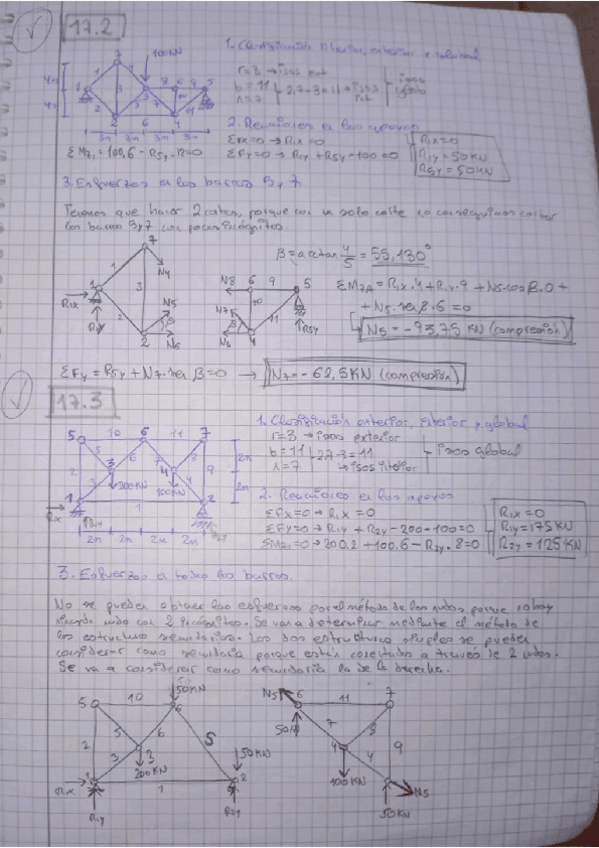 17.2
1. Clasificación interior, exterior y global
r=3 → isos ext
b=11
n=7
2·7-3=11 → isos int
isos global
100KN
4m
4m
3m 3m 3m 3m
2. Reacciones en los apoyos
ΣFx=0 → R1x=0
ΣFy=0 → R1y + R5y - 100 = 0
R1x=0
R1y=50KN
R5y=50KN
3. Esfuerzos en las barras 5 y 7
Tenemos que hacer 2 cortes, porque con un solo corte no conseguimos cortar
las barras 5 y 7 con pocas incógnitas.
N4
N5
N6
R1x
N8
N7
N6
R5y
ΣFy = R5y + N7·sen β=0 → N7=-62,5KN (compresión)
N5=-93,75 KN (compresión)
17.3
1. Clasificación exterior, interior y global
r=3 → isos exterior
b=11
n=7
2·7-3=11
→ isos interior
isos global
200KN
100KN
2m
2m
2m 2m 2m 2m
R1x
R1y
2. Reacciones en los apoyos
ΣFx=0 → R1x=0
ΣFy=0 → R1y + R2y - 200 - 100 = 0
ΣM1=0 → 200·2 + 100·6 - R2y·8=0
R1x=0
R1y=175KN
R2y=125KN
3. Esfuerzos en todas las barras.
No se pueden obtener los esfuerzos por el método de los nudos porque no hay
ningún nudo con 2 incógnitas. Se va a determinar mediante el método de
las estructuras secundarias. Las dos estructuras simples se pueden
considerar como secundaria porque están conectadas a través de 2 nudos.
Se va a considerar como secundaria la de la derecha.
50KN
50KN
200KN
R1x
R1y
NS
50KN
100KN
NS
50KN